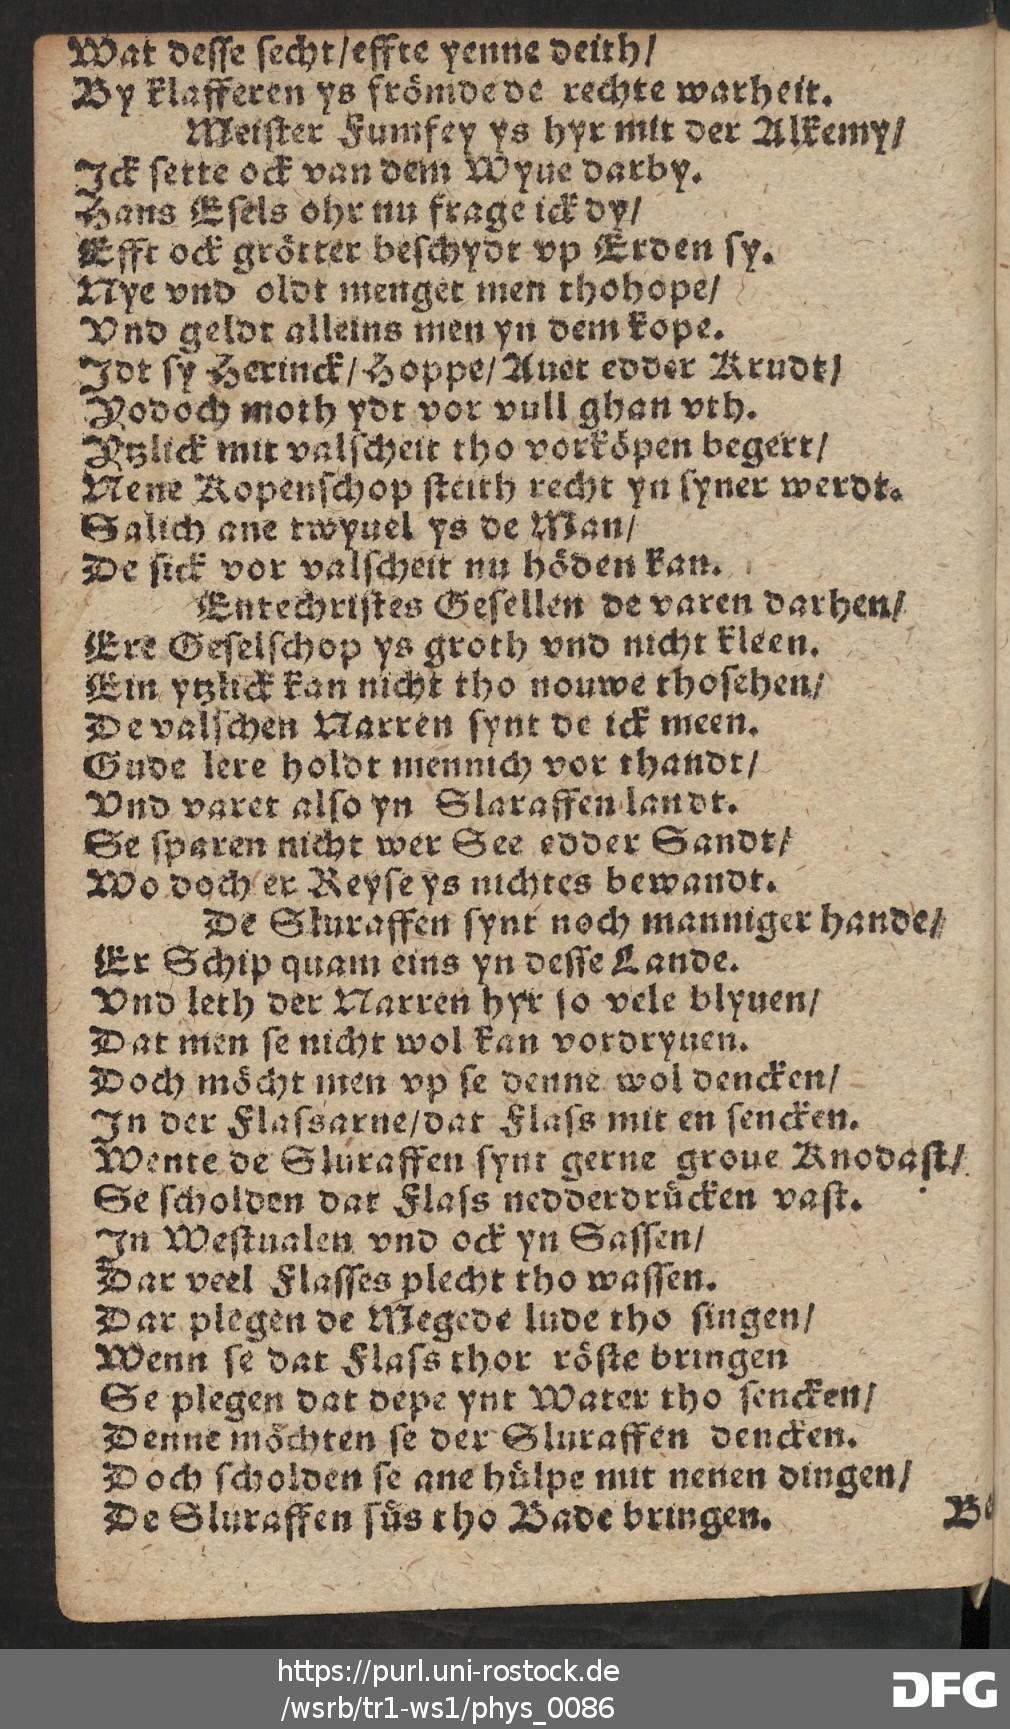 Wat desse secht/effte yenne deith/
By klafferen ys frömde de rechte warheit.
Meister Fumfey ys hyr mit der Alkemy/
Ick sette ock van dem Wyue darby.
Hans Esels ohr nu frage ick dy/
Efft ock grötter beschydt vp Erden sy.
Nye vnd oldt menget men thohope/
Vnd geldt alleins men yn dem kope.
Idt sy Herinck/Hoppe/Auer edder Krudt/
Yodoch moth ydt vor vull ghan vth.
Ytzlick mit valscheit tho vorköpen begert/
Nene Kopenschop steith recht yn syner werdt.
Salich ane twyuel ys de Man/
De sick vor valscheit nu höden kan.
Entechristes Gesellen de varen darhen/
Ere Geselschop ys groth vnd nicht kleen.
Ein ytzlick kan nicht tho nouwe thosehen/
De valschen Narren synt de ick meen.
Gude lere holdt mennich vor thandt/
Vnd varet also yn Slaraffen landt.
Se sparen nicht wer See edder Sandt/
Wo doch er Reyse ys nichtes bewandt.
De Sluraffen synt noch manniger hande/
Er Schip quam eins yn desse Lande.
Vnd leth der Narren hyr so vele blyuen/
Dat men se nicht wol kan vordryuen.
Doch möcht men vp se denne wol dencken/
In der Flassarne/dat Flass mit en sencken.
Wente de Sluraffen synt gerne groue Knodast/
Se scholden dat Flass nedderdrücken vast.
In Westualen vnd ock yn Sassen/
Dar veel Flasses plecht tho wassen.
Dar plegen de Megede lude tho singen/
Wenn se dat Flass thor röste bringen
Se plegen dat depe ynt Water tho sencken/
Denne möchten se der Sluraffen dencken.
Doch scholden se ane hülpe mit nenen dingen/
De Sluraffen süs tho Bade bringen.
https://purl.uni-rostock.de
/wsrb/tr1-ws1/phys_0086
DFG